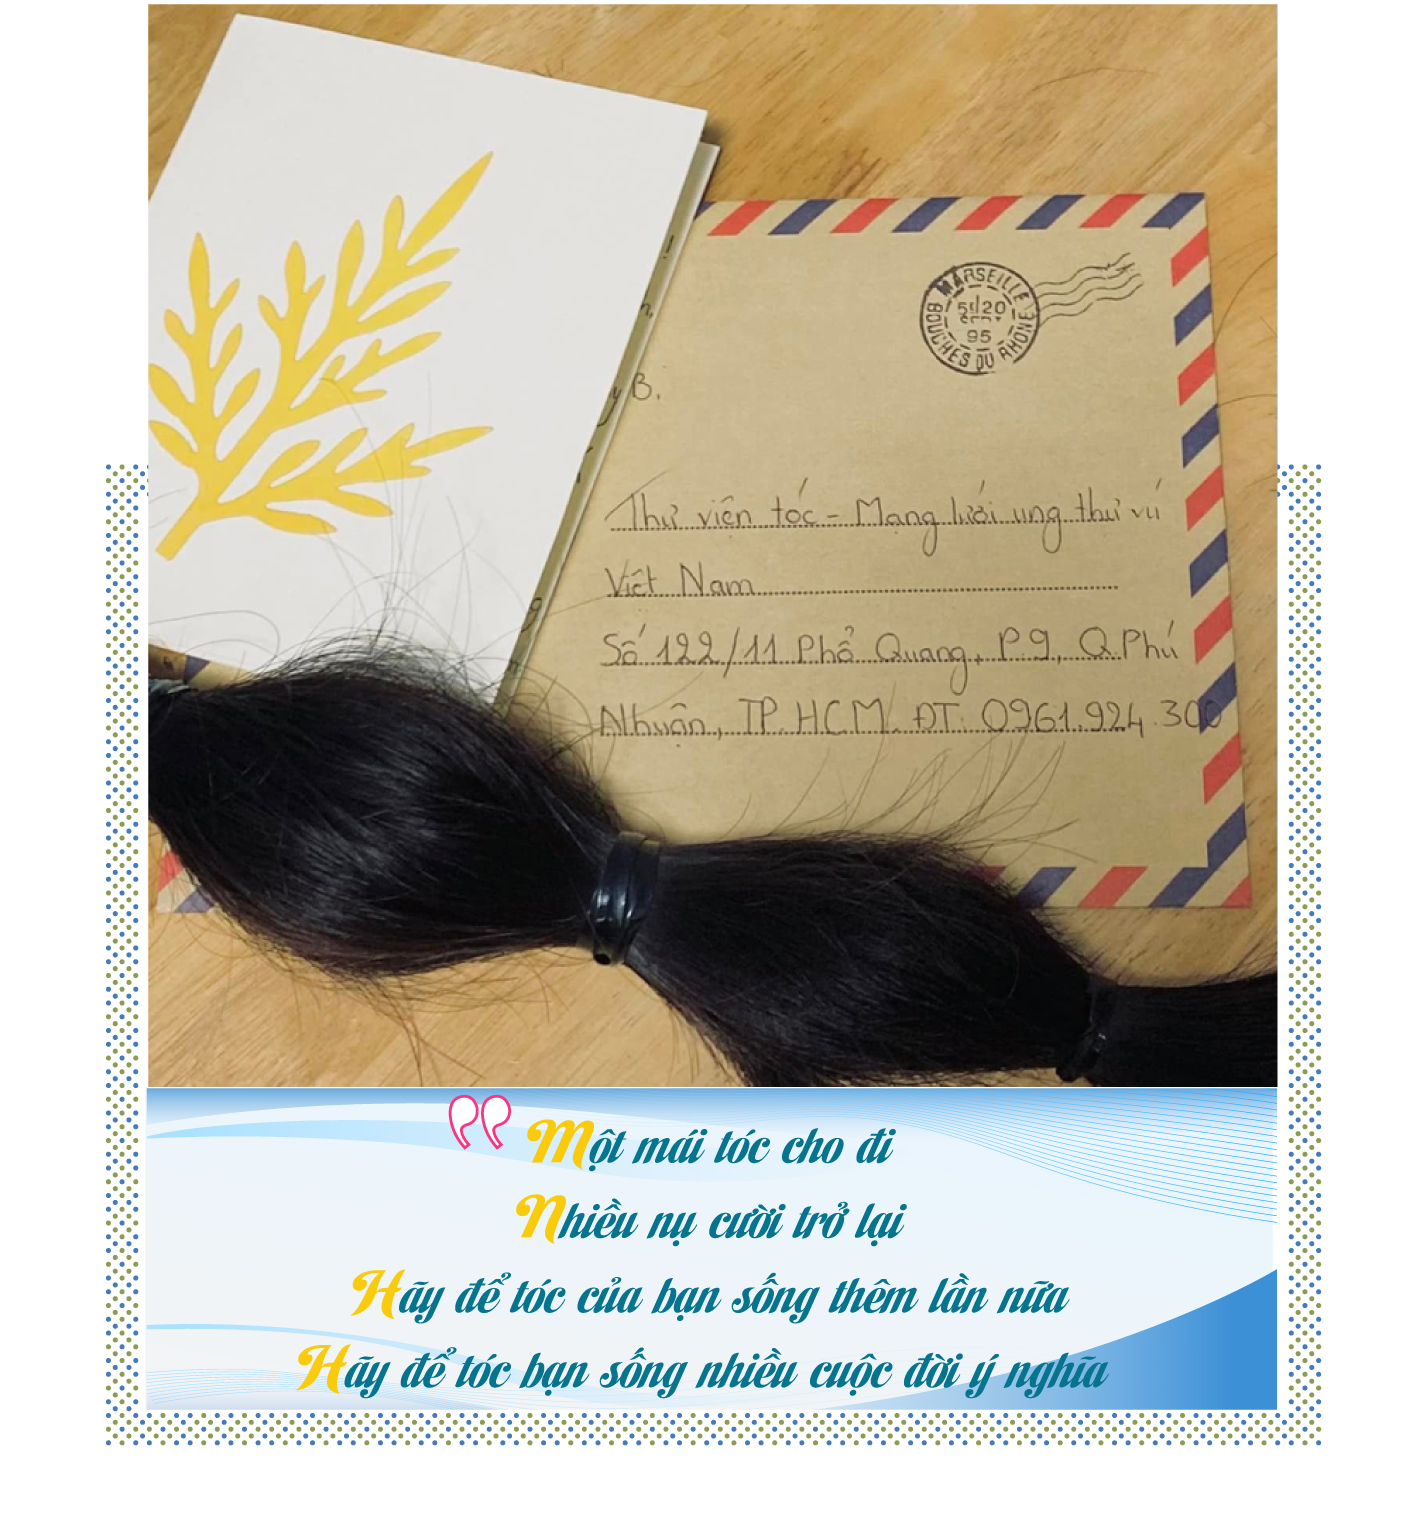 MARSEILLE
20
95
BOUCHES DU RHONE
y B.
Thư viện tóc - Mạng lưới ung thư vú
Việt Nam
Số 122/11 Phổ Quang, P.9, Q.Phú
Nhuận, TP.HCM. ĐT: 0961.924.300
Một mái tóc cho đi
Nhiều nụ cười trở lại
Hãy để tóc của bạn sống thêm lần nữa
Hãy để tóc bạn sống nhiều cuộc đời ý nghĩa